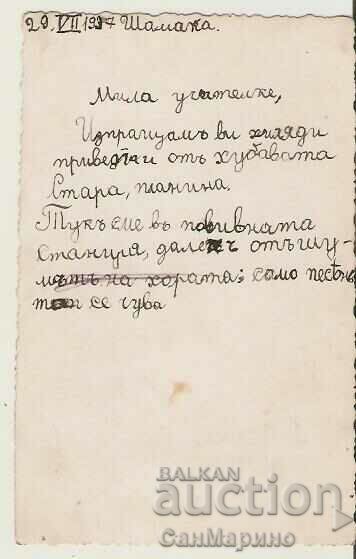 29.VII 1937 Шамака.
Мила учителке,
Изпращамъ ви хиляди
привети отъ хубавата
Стара, планина.
Тукъ сме въ
станция, далечъ отъ шу-
мътъ на хората: само песень
се чува
BALKAN
auction
СанМарино